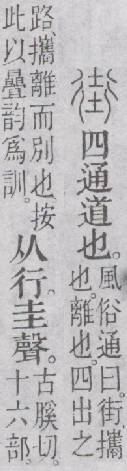 街四通道也。
風俗通曰。街、攜
也。離也。四出之
路。攜離而別也。按
此以疊韵爲訓。
从行。圭聲。
古膎切。
十六部。